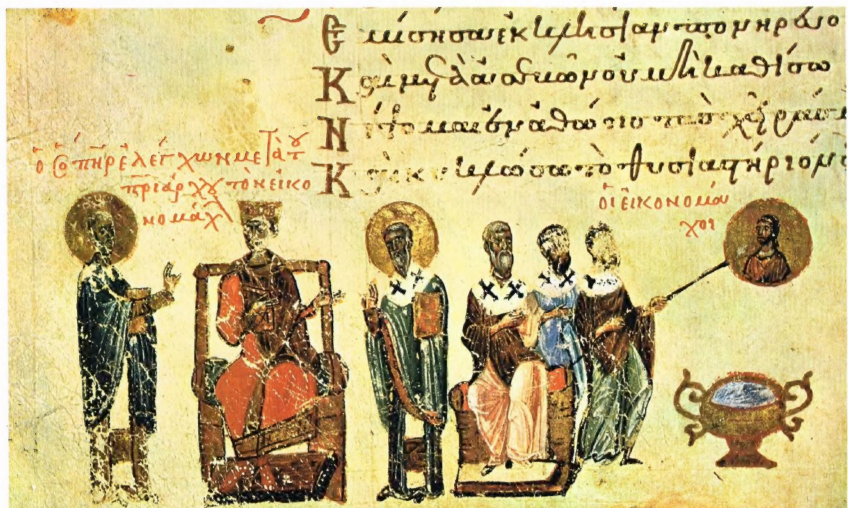 Ἐμίσησα ἐκκλησίαν πονηρ
Καὶ μετὰ οὐ μὴ καθίσω
Νίψομαι ἐν ἀθώοις τὰς χεῖράς
Καὶ κυκλώσω τὸ θυσιαστήριόν
ὁ πηρ ἐλέγχων μετὰ τοῦ
πριάρχου τὸν εἰκο
νομάχ
οἱ εἰκονομά
χοι